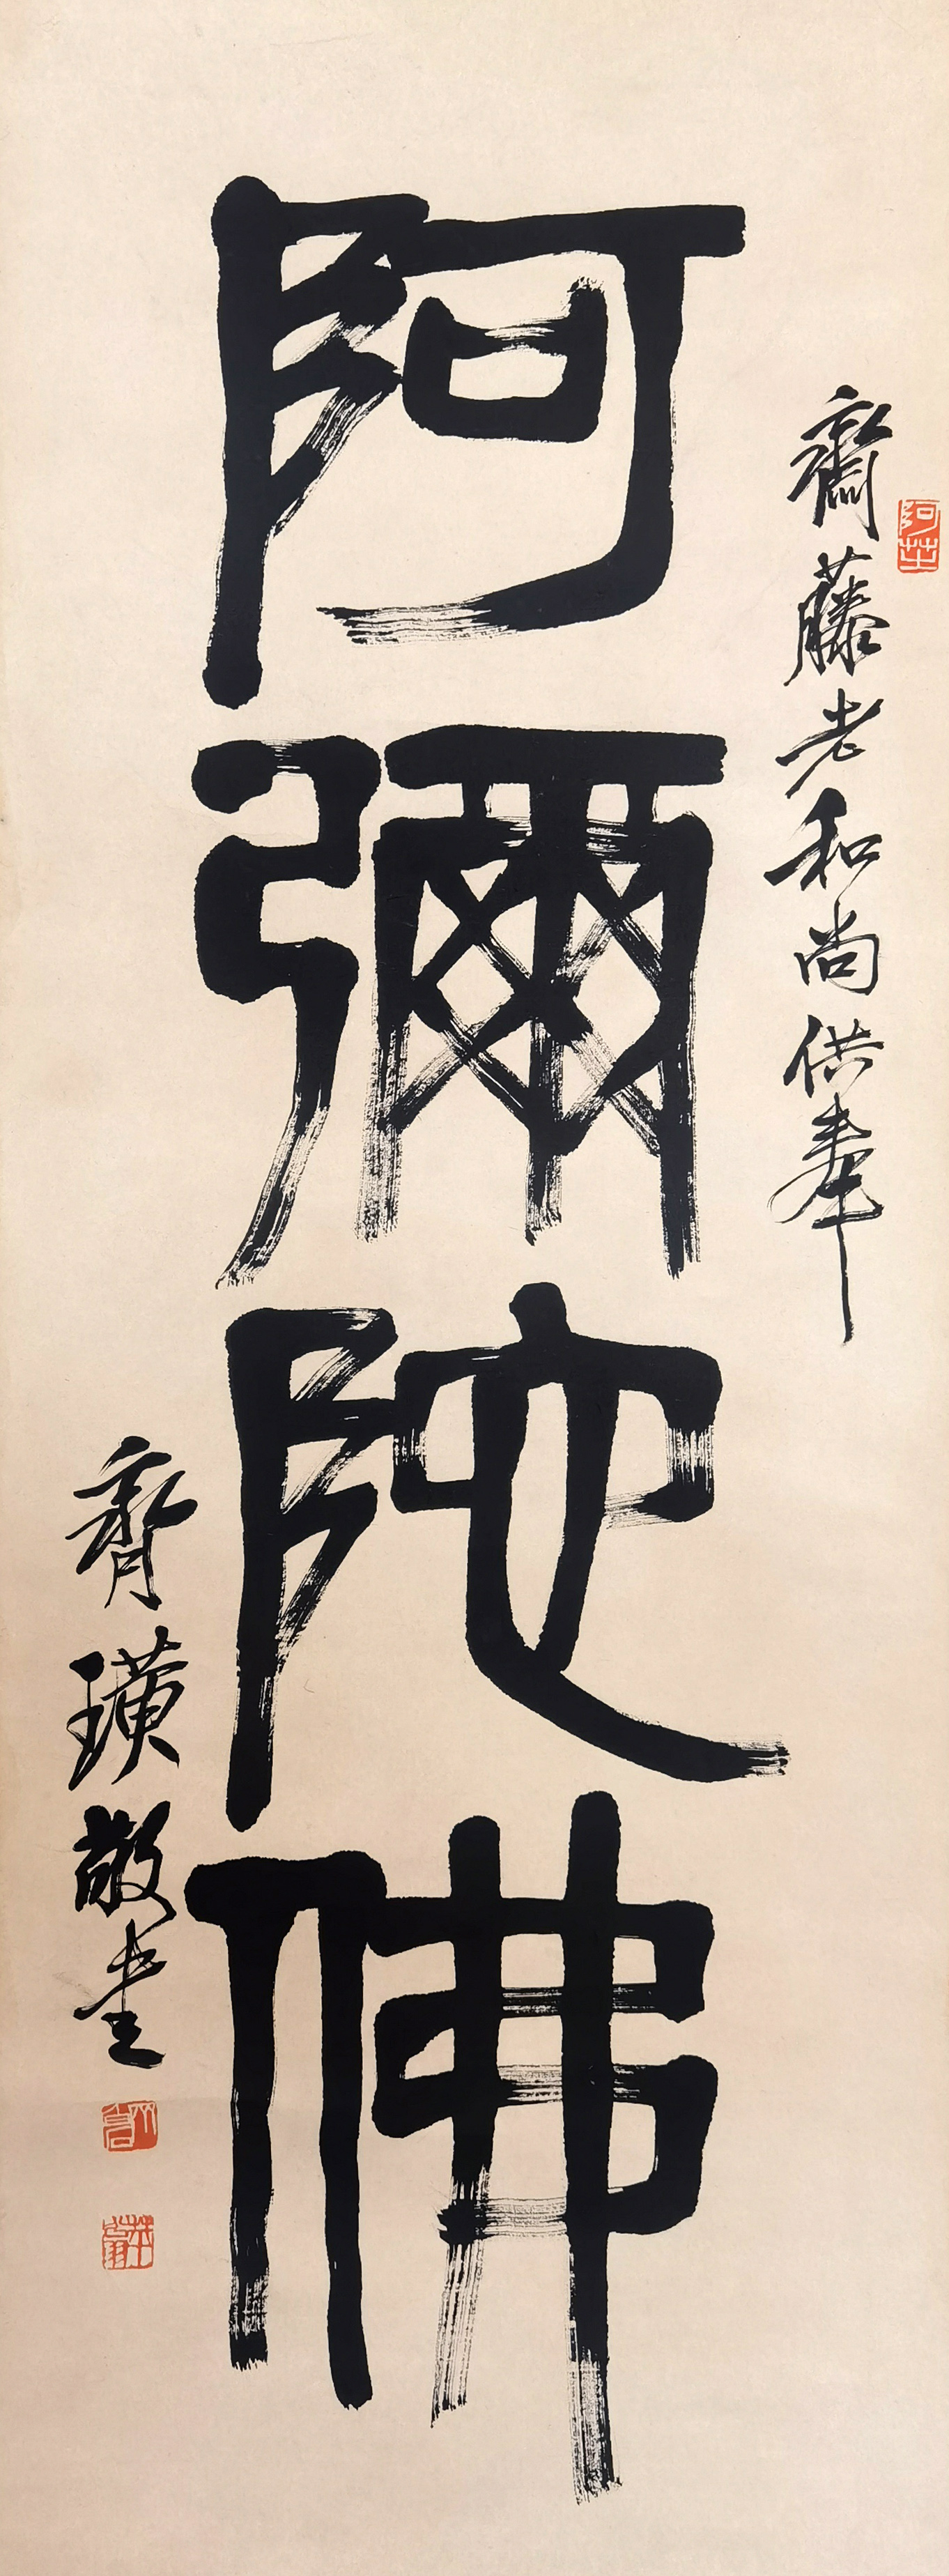 齋藤老和尚供奉
阿彌陀佛
齊璜敬書
阿芝